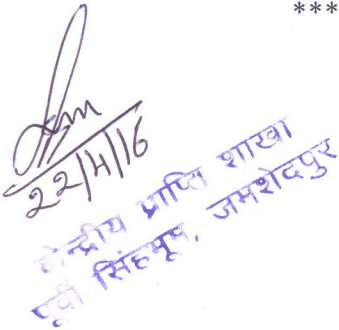 ***
22/4/16
केन्द्रीय प्राप्ति शाखा
पूर्वी सिंहभूम, जमशेदपुर